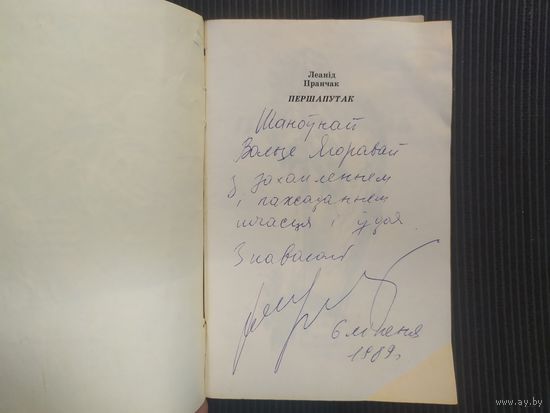 Леанід
Пранчак
ПЕРШАПУТАК
Шаноўнай
Вользе Ягоравай
з захапленнем
і пажаданнем
шчасця і ўдач
З павагай
6 ліпеня
1989 г.
www.ay.by